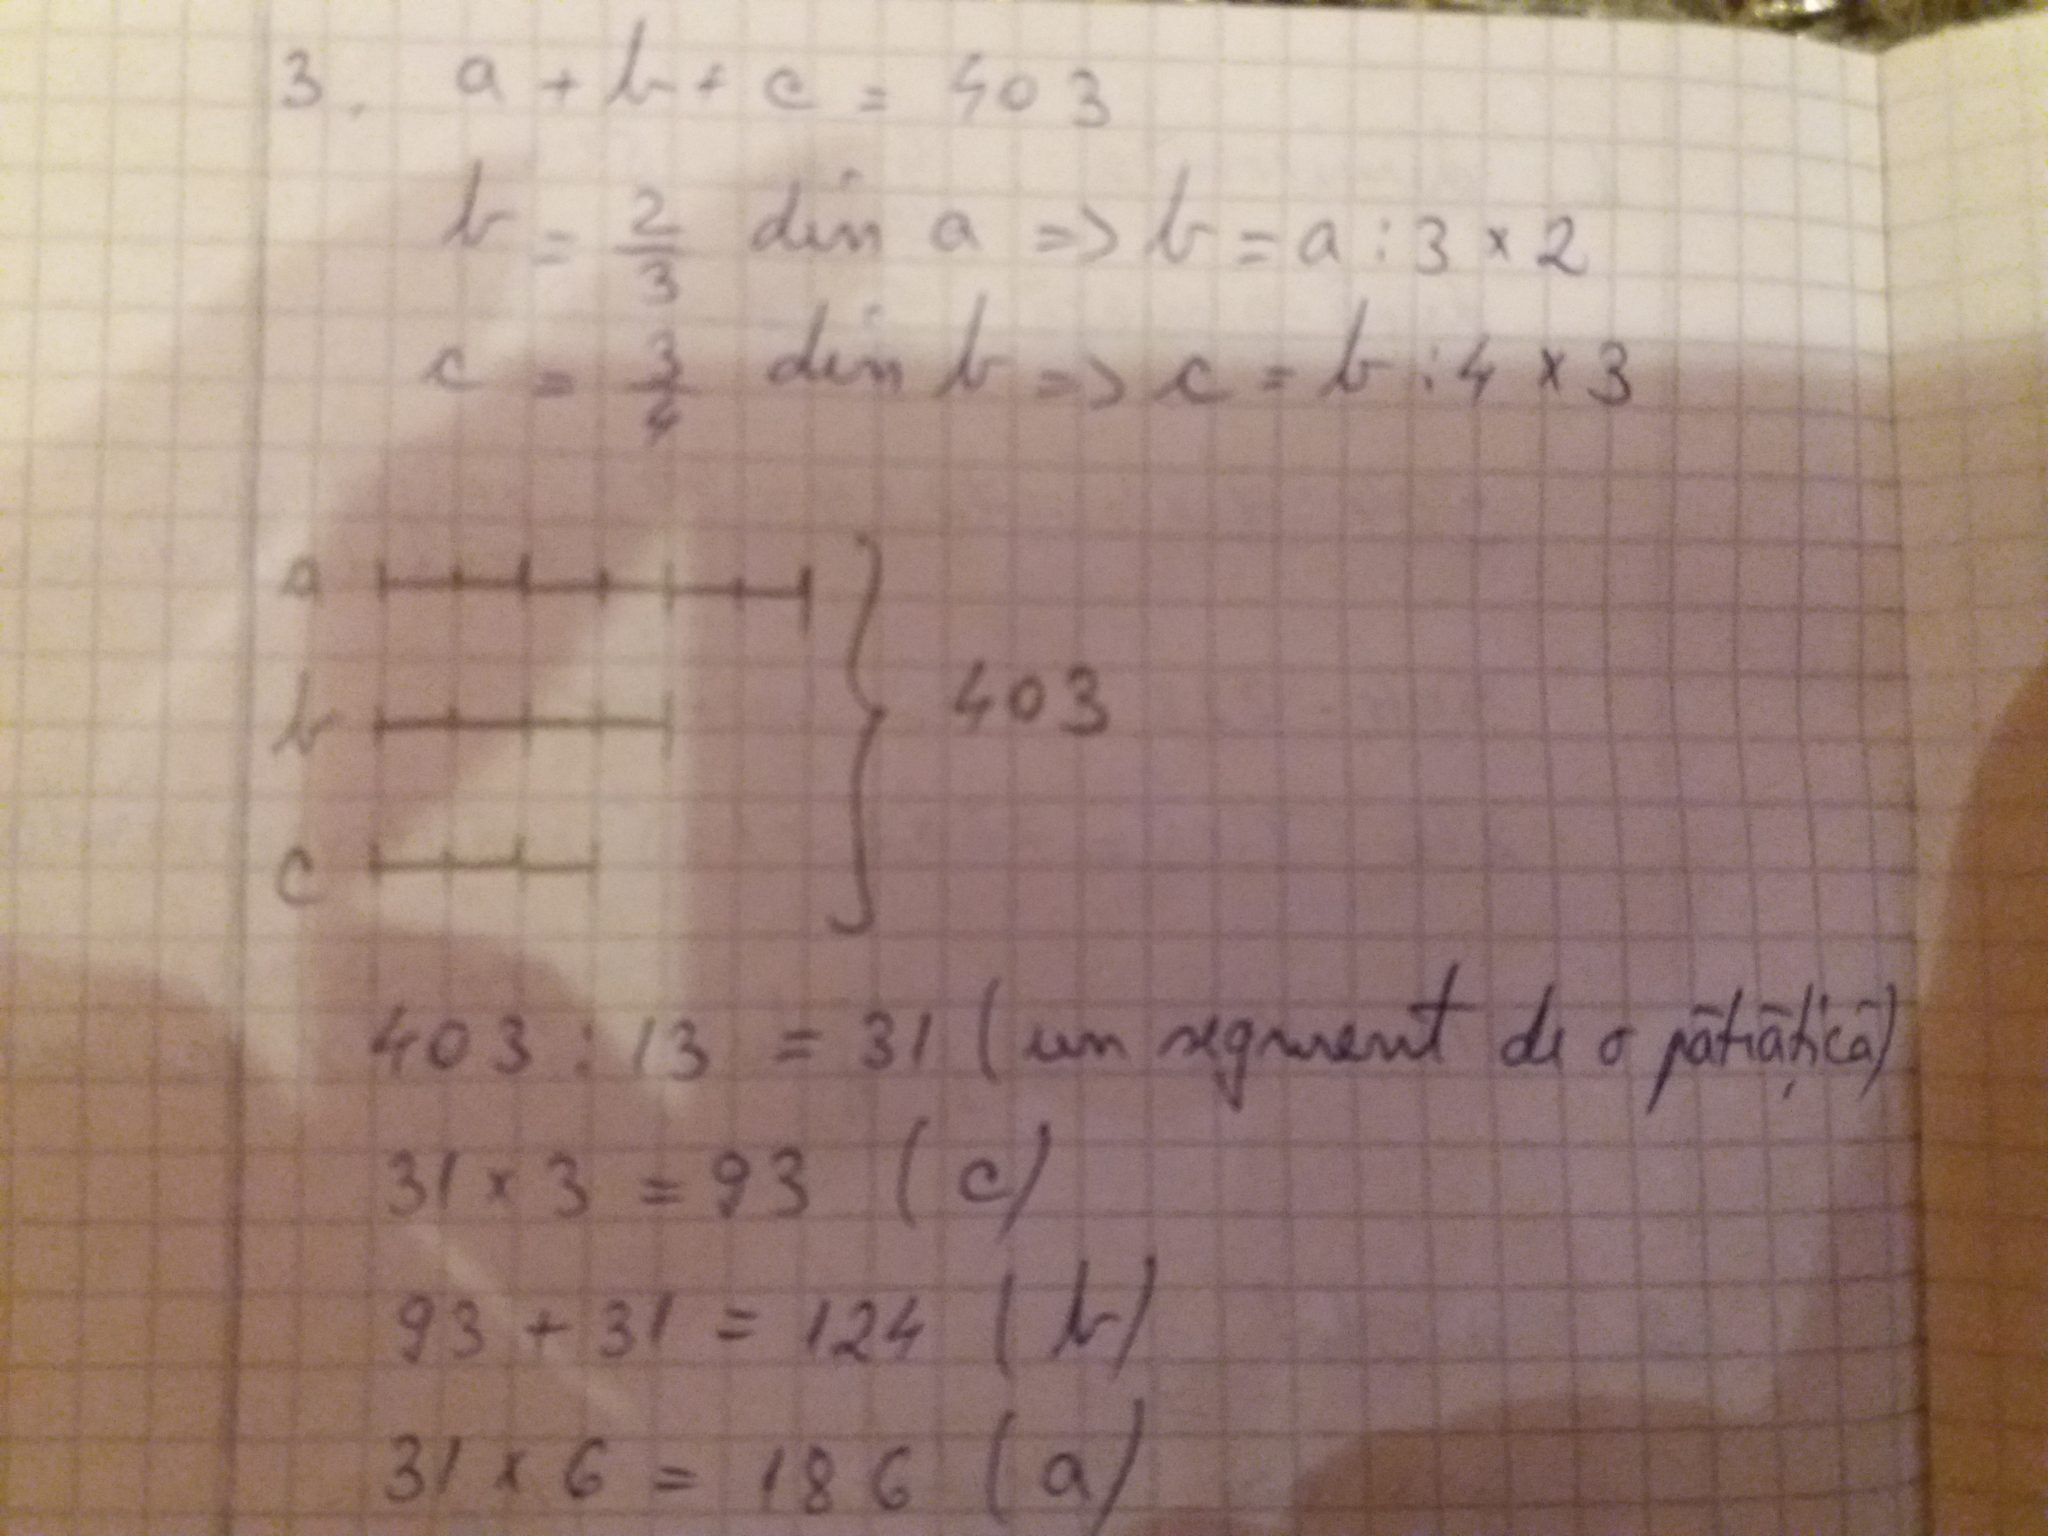 3. a + b + c = 403
b = 2/3 din a => b = a : 3 × 2
c = 3/4 din b => c = b : 4 × 3
a
b
403
c
403 : 13 = 31 (un segment de o pătrățică)
31 × 3 = 93 (c)
93 + 31 = 124 (b)
31 × 6 = 186 (a)